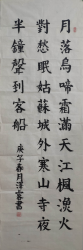 月落烏啼霜滿天江楓漁火
對愁眠姑蘇城外寒山寺夜
半鐘聲到客船
庚子春月